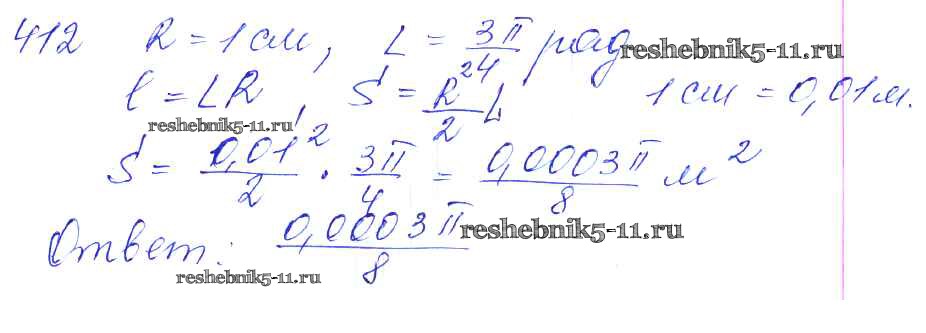 412 R = 1 см, L = 3π/4 рад reshebnik5-11.ru
l = LR, S = R²/2 L 1 см = 0,01 м.
reshebnik5-11.ru
S = 0,01²/2 · 3π/4 = 0,0003π/8 м²
Ответ: 0,0003π/8 reshebnik5-11.ru
reshebnik5-11.ru